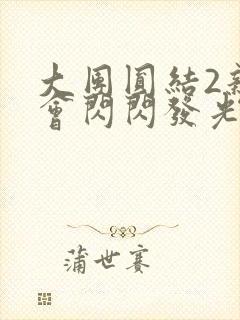 大團圓結2新
會閃閃發光
蒲世賽